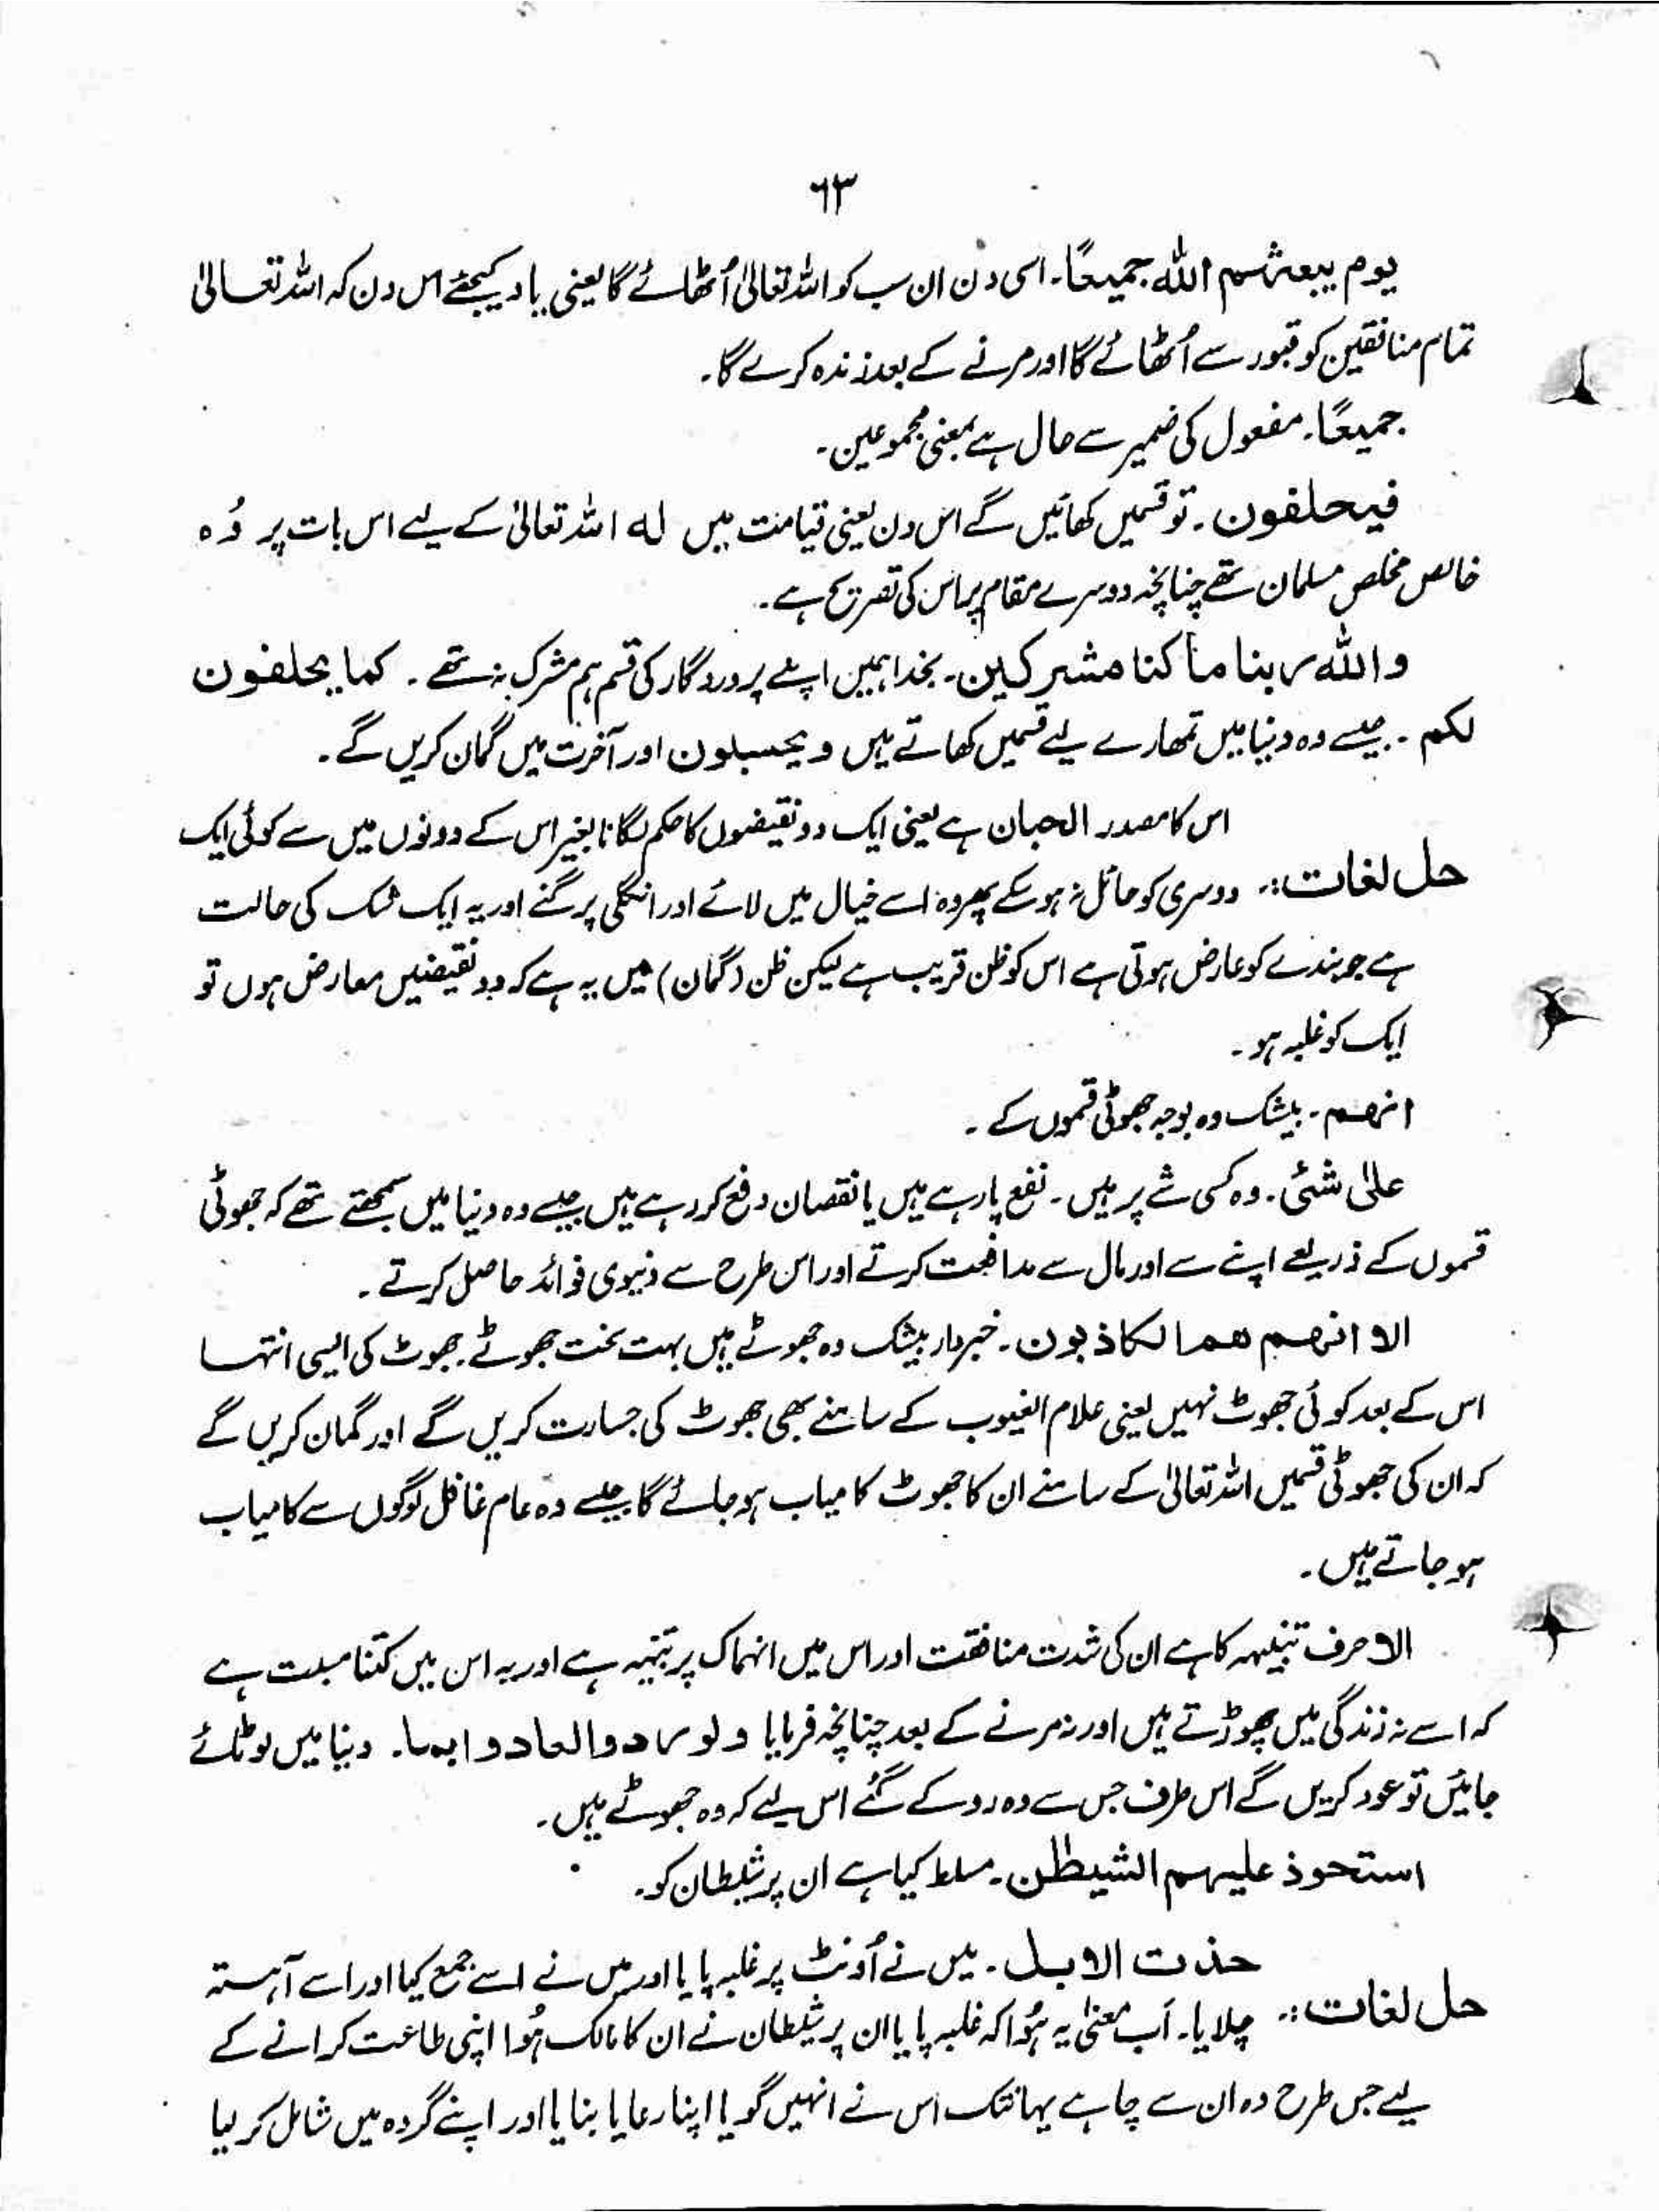 ٦٣
یوم یبعثہم اللہ جمیعًا۔ اسی دن ان سب کو اللہ تعالیٰ اُٹھائے گا یعنی یاد کیجئے اس دن کہ اللہ تعالیٰ
تمام منافقین کو قبور سے اُٹھائے گا اور مرنے کے بعد زندہ کرے گا۔
جمیعًا۔ مفعول کی ضمیر سے حال ہے بمعنی مجموعین۔
فیحلفون۔ تو قسمیں کھائیں گے اس دن یعنی قیامت میں لہ اللہ تعالیٰ کے لیے اس بات پر وُہ
خالص مخلص مسلمان تھے چنانچہ دوسرے مقام پر اس کی تصریح ہے۔
واللہ ربنا ما کنا مشرکین۔ بخدا ہمیں اپنے پروردگار کی قسم ہم مشرک نہ تھے۔ کما یحلفون
لکم۔ جیسے وہ دنیا میں تمھارے لیے قسمیں کھاتے ہیں و یحسبون اور آخرت میں گمان کریں گے۔
اس کا مصدر الحبان ہے یعنی ایک دو نقیضوں کا حکم لگانا بغیر اس کے دونوں میں سے کوئی ایک
حل لغات:۔ دوسری کو حائل نہ ہو سکے پھر وہ اسے خیال میں لائے اور انگلی پر گنے اور یہ ایک شک کی حالت
ہے جو بندے کو عارض ہوتی ہے اس کو ظن قریب ہے لیکن ظن (گمان) میں یہ ہے کہ دو نقیضیں معارض ہوں تو
ایک کو غلبہ ہو۔
انہم۔ بیشک وہ بوجہ جھوٹی قسموں کے۔
علیٰ شئی۔ وہ کسی شے پر ہیں۔ نفع پا رہے ہیں یا نقصان دفع کر رہے ہیں جیسے وہ دنیا میں سمجھتے تھے کہ جھوٹی
قسموں کے ذریعے اپنے سے اور مال سے مدافعت کرتے اور اس طرح سے دنیوی فوائد حاصل کرتے۔
الا انہم ھم الکاذبون۔ خبردار بیشک وہ جھوٹے ہیں بہت سخت جھوٹے۔ جھوٹ کی ایسی انتہا
اس کے بعد کوئی جھوٹ نہیں یعنی علام الغیوب کے سامنے بھی جھوٹ کی جسارت کریں گے اور گمان کریں گے
کہ ان کی جھوٹی قسمیں اللہ تعالیٰ کے سامنے ان کا جھوٹ کامیاب ہو جائے گا جیسے وہ عام غافل لوگوں سے کامیاب
ہو جاتے ہیں۔
الا حرف تنبیہہ کا ہے ان کی شدت منافقت اور اس میں انہماک پر تنبیہ ہے اور یہ اس میں کتنا مبلت ہے
کہ اسے نہ زندگی میں چھوڑتے ہیں اور نہ مرنے کے بعد چنانچہ فرمایا ولو ردوا لعادوا بہا۔ دنیا میں لوٹائے
جائیں تو عود کریں گے اس طرف جس سے وہ رد کے گئے اس لیے کہ وہ جھوٹے ہیں۔
استحوذ علیہم الشیطٰن۔ مسلط کیا ہے ان پر شیطان کو۔
حذت الابل۔ میں نے اُونٹ پر غلبہ پایا اور میں نے اسے جمع کیا اور اسے آہستہ
حل لغات:۔ چلایا۔ اَب معنیٰ یہ ہُوا کہ غلبہ پایا ان پر شیطان نے ان کا مالک ہُوا اپنی طاعت کرانے کے
لیے جس طرح وہ ان سے چاہے یہانتک اس نے انہیں گویا اپنا رعایا بنایا اور اپنے گروہ میں شامل کر لیا